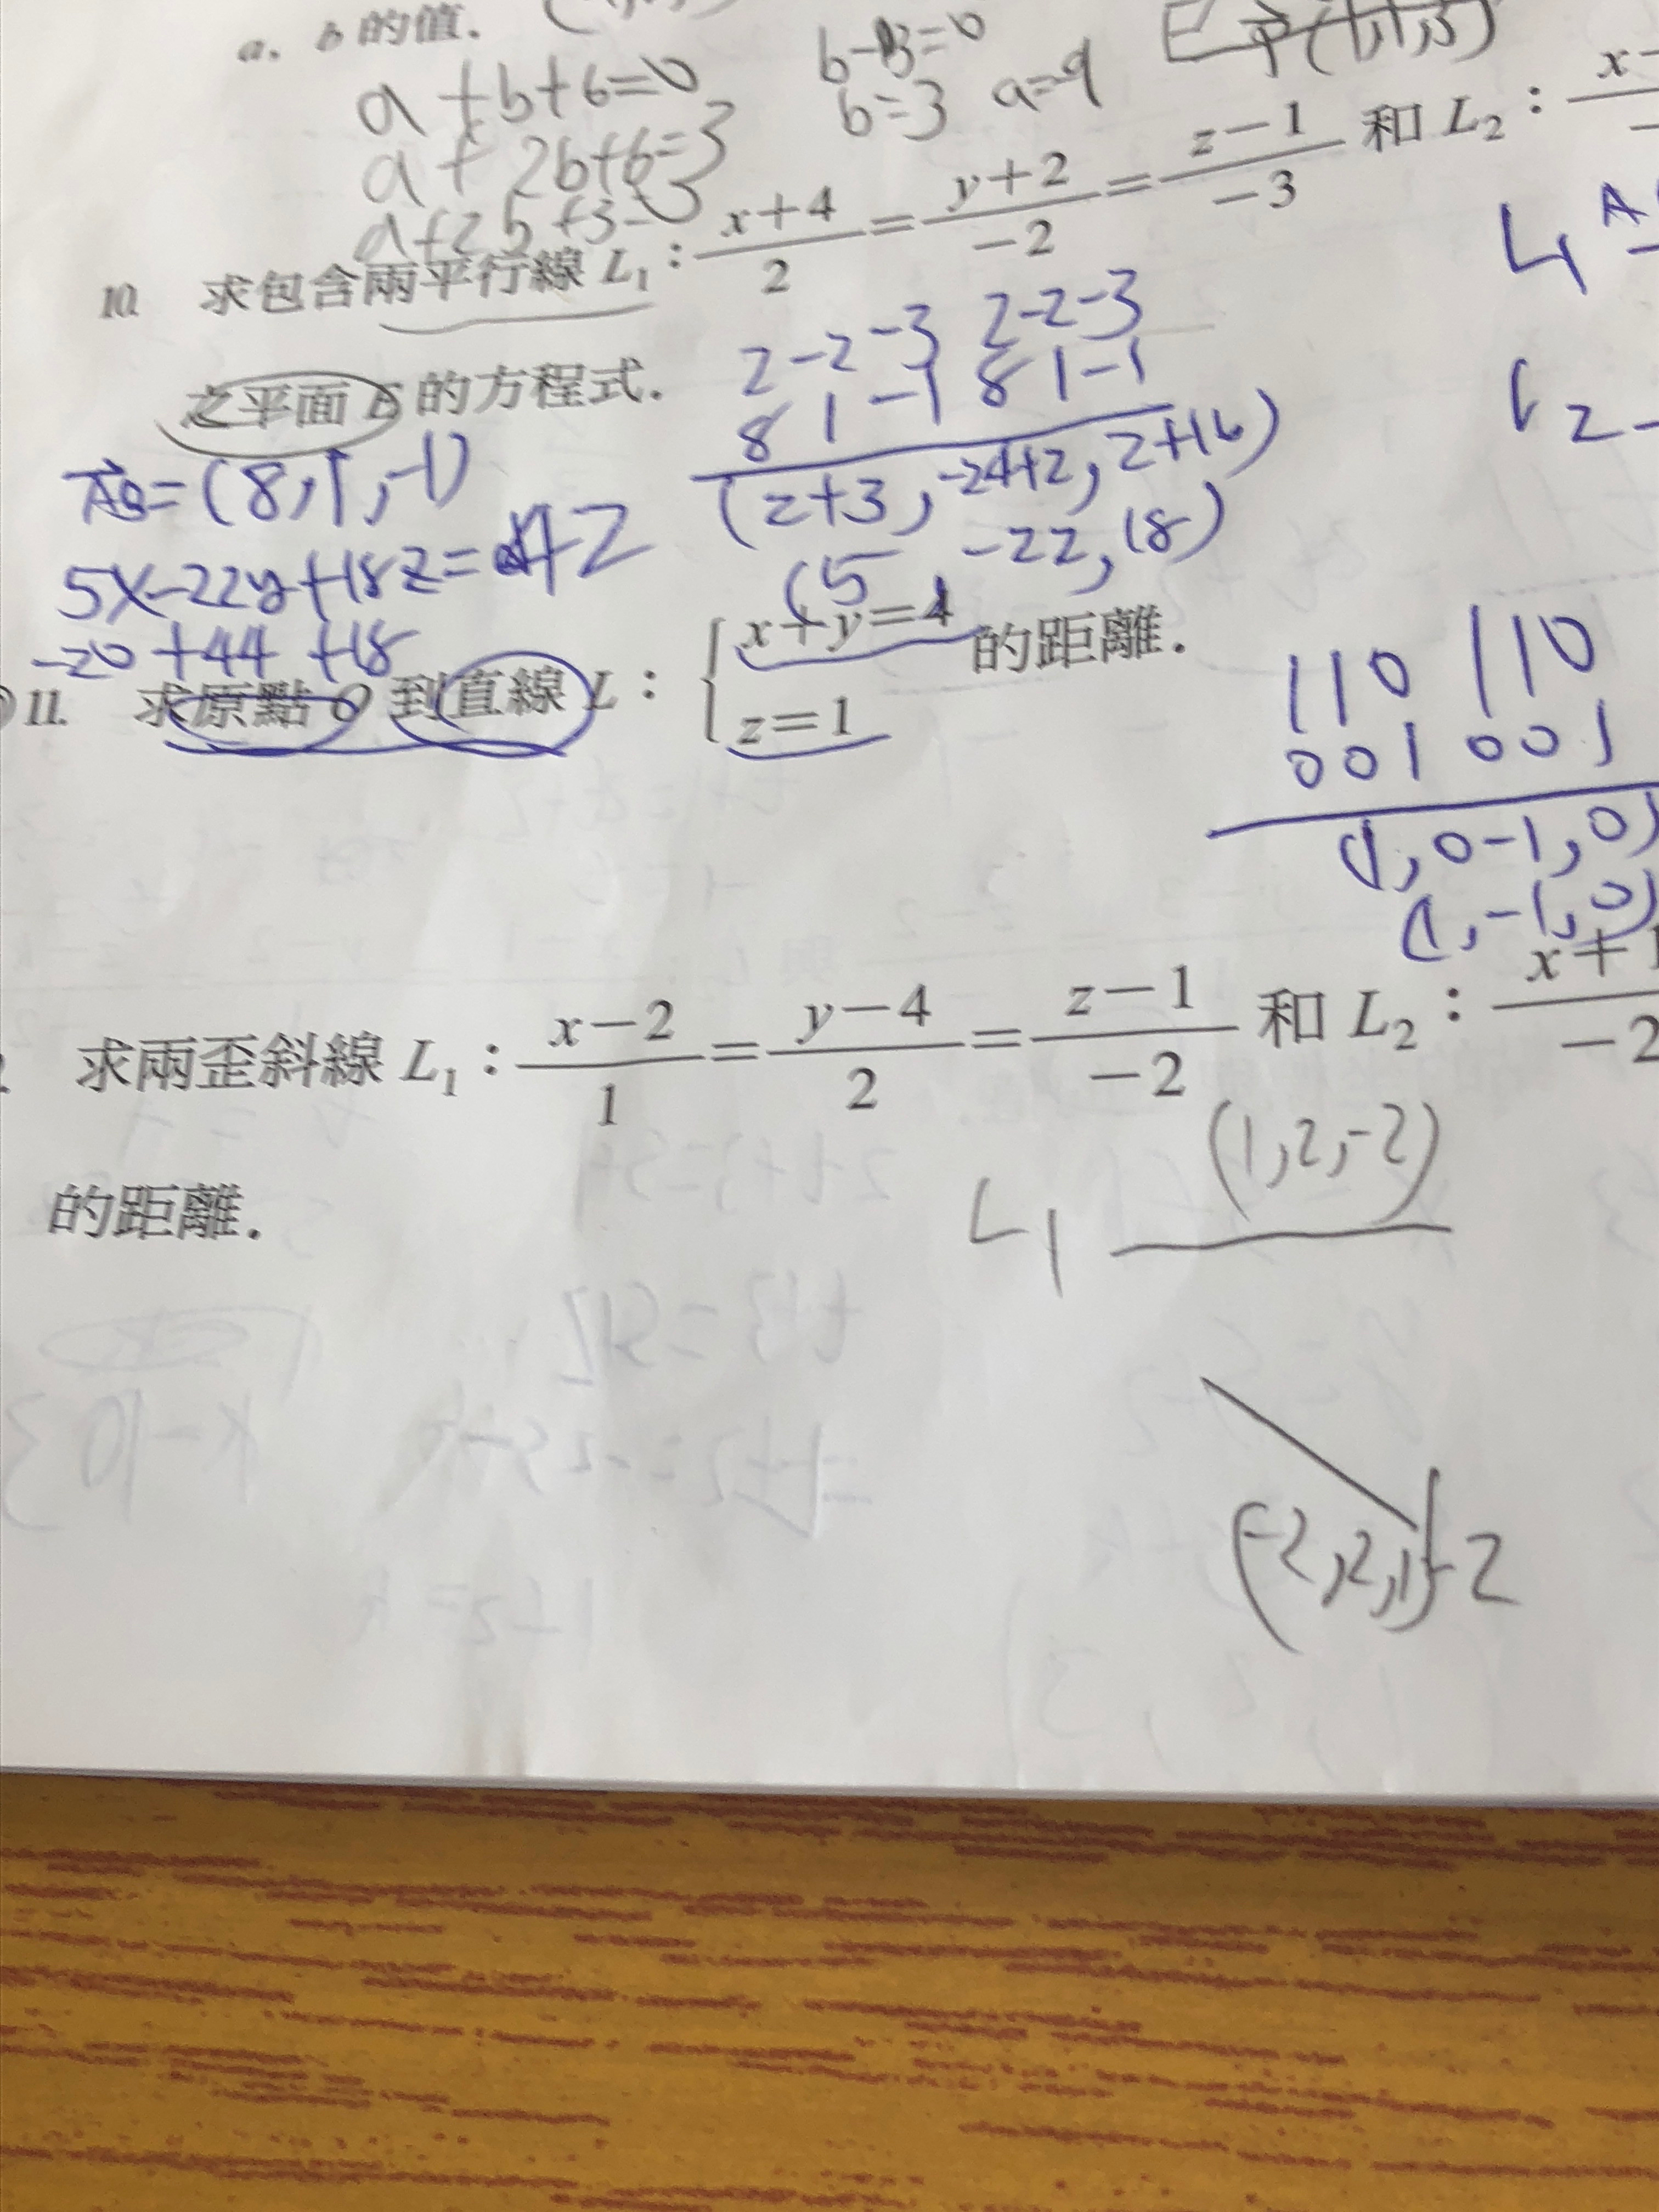 a、b 的值.
b-3=0
a+b+6=0
b=3 a=-9
a+2b+6=3
a+2b+3=
10. 求包含兩平行線 L₁：(x+4)/2=(y+2)/-2=(z-1)/-3 和 L₂：
L₁ A
之平面 E 的方程式.
2-2-3 2-2-3
8 1-1 8 1-1
(2+3,-24+2,2+16)
(5,-22,18)
AB=(8,1,-1)
5x-22y+18z=42
-20+44+18
11. 求原點 O 到直線 L：{x+y=4
z=1
的距離.
110 110
001 001
(1,0-1,0)
(1,-1,0)
求兩歪斜線 L₁：(x-2)/1=(y-4)/2=(z-1)/-2 和 L₂：(x+1)/-2
的距離.
L₁ (1,2,-2)
(-2,2,1)